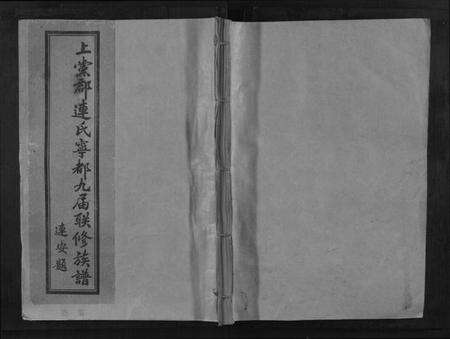 上黨郡連氏寧都九届联修族譜
連安題